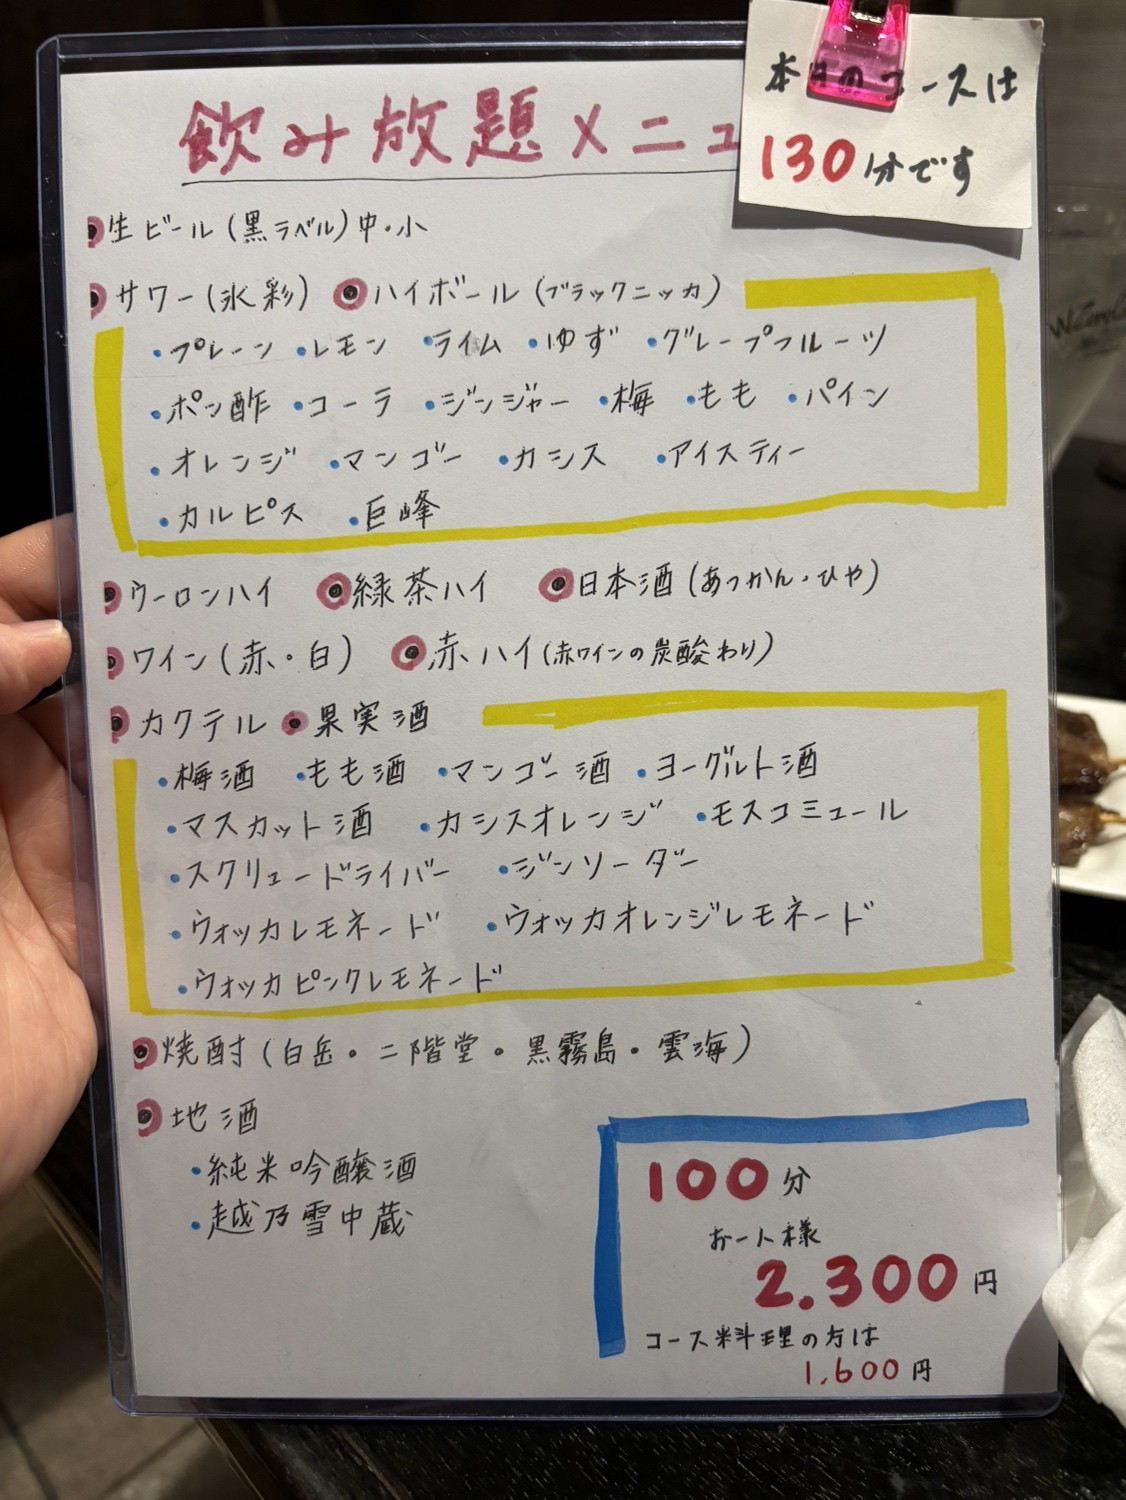 本日のコースは
130分です
飲み放題メニュ
生ビール(黒ラベル)中・小
サワー(氷彩) ハイボール(ブラックニッカ)
・プレーン ・レモン ・ライム ・ゆず ・グレープフルーツ
・ポン酢 ・コーラ ・ジンジャー ・梅 ・もも ・パイン
・オレンジ ・マンゴー ・カシス ・アイスティー
・カルピス ・巨峰
ウーロンハイ 緑茶ハイ 日本酒(あつかん・ひや)
ワイン(赤・白) 赤ハイ(赤ワインの炭酸わり)
カクテル 果実酒
・梅酒 ・もも酒 ・マンゴー酒 ・ヨーグルト酒
・マスカット酒 ・カシスオレンジ ・モスコミュール
・スクリュードライバー ・ジンソーダー
・ウォッカレモネード ・ウォッカオレンジレモネード
・ウォッカピンクレモネード
焼酎(白岳・二階堂・黒霧島・雲海)
地酒
・純米吟醸酒
・越乃雪中蔵
100分
お一人様
2.300円
コース料理の方は
1,600円